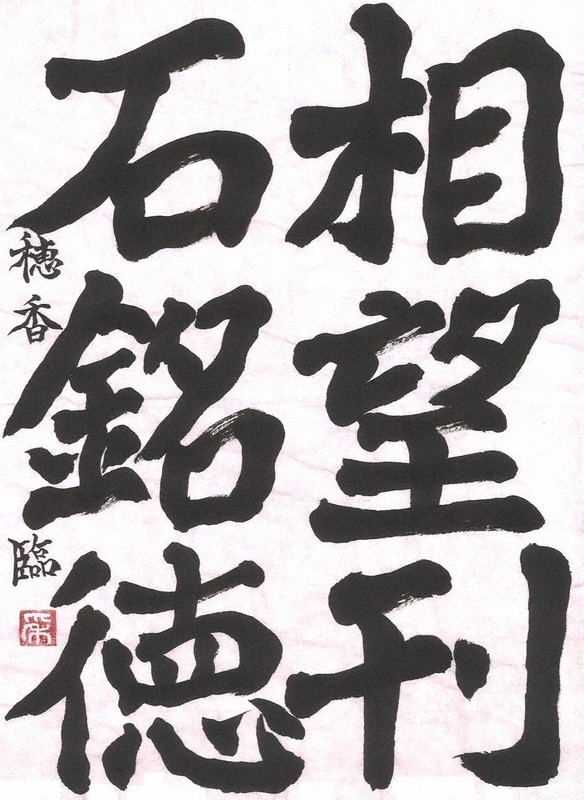 相望刊
石銘徳
穂香臨